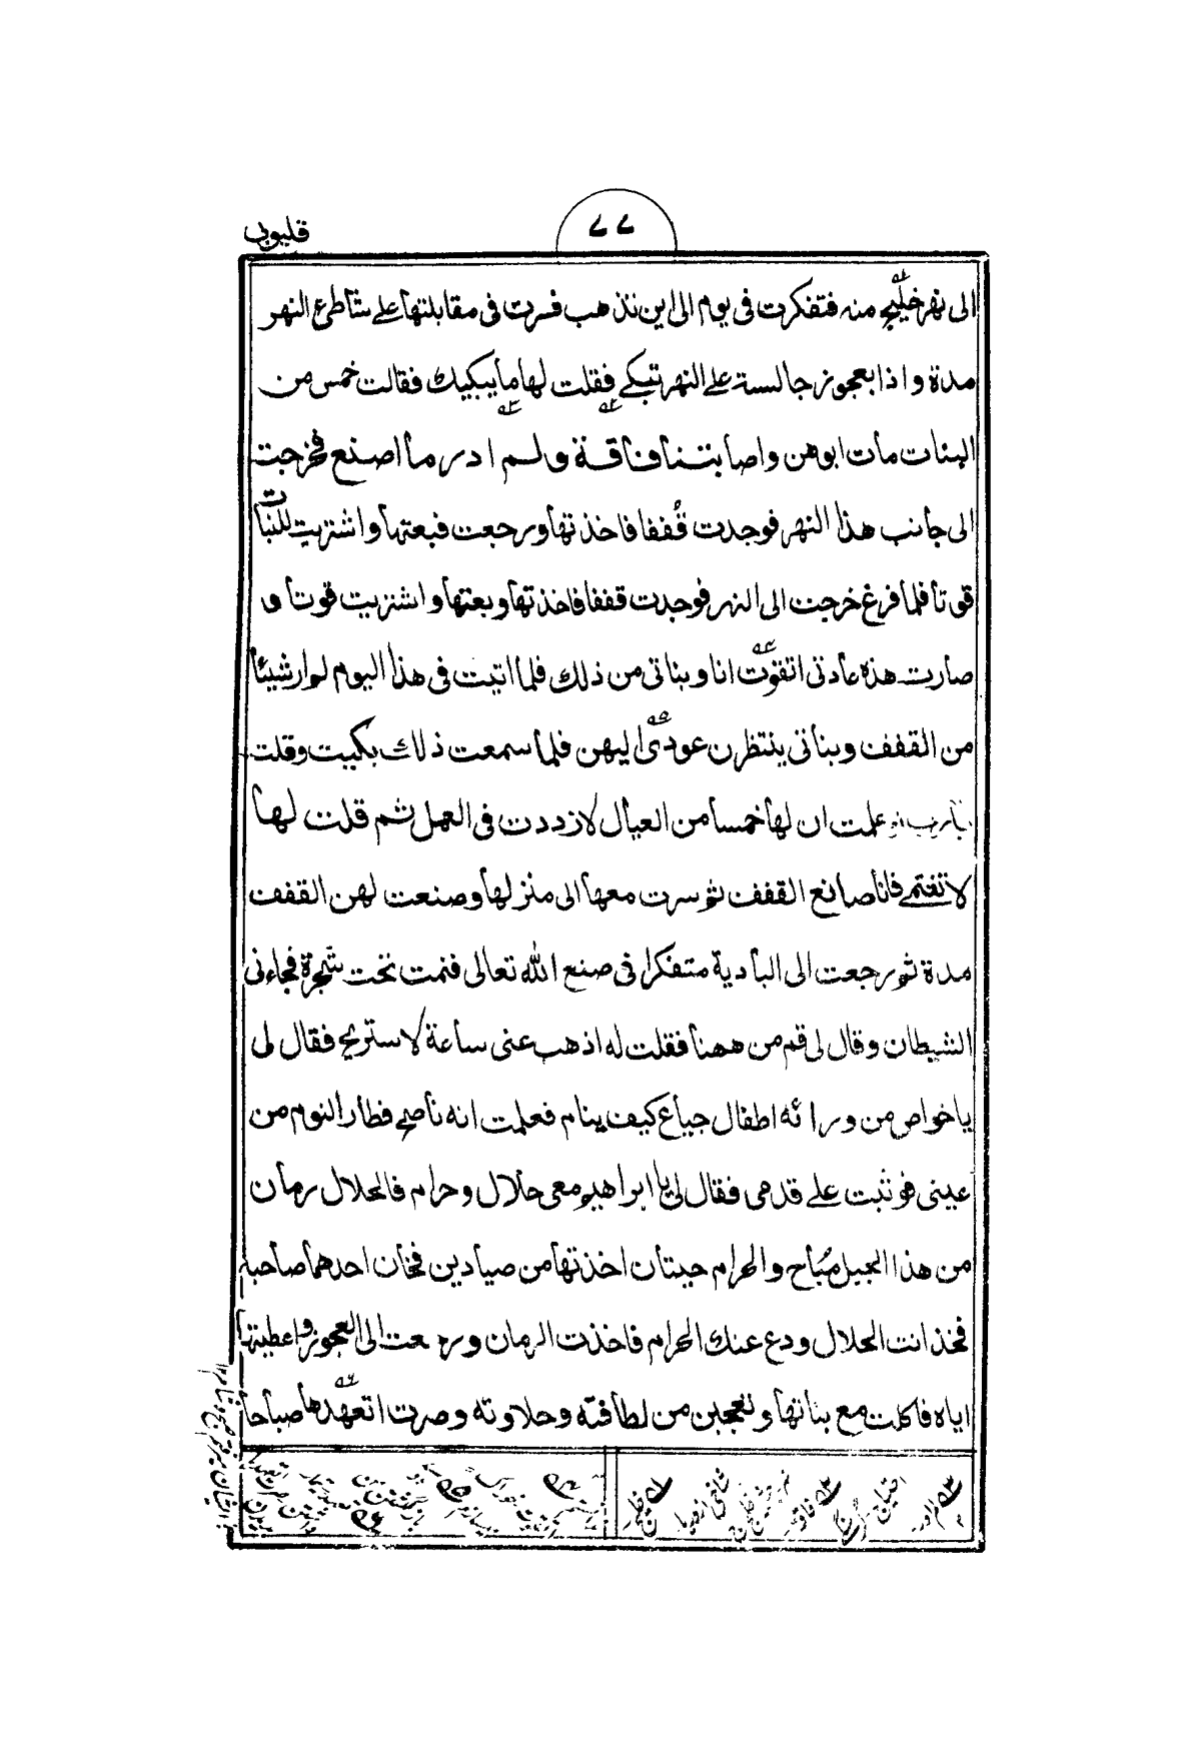 قليوبی
٧٧
الى نهر خليج منه فتفكرت فى يوم الى اين تذهب فسرت فى مقابلتها على شاطئ النهر
مدة واذا بعجوز جالسة على النهر تبكے فقلت لها ما يبكيك فقالت خمس من
البنات مات ابوهن واصابتنا فاقة ولم ادر ما اصنع فخرجت
الى جانب هذا النهر فوجدت قُففا فاخذتها ورجعت فبعتها واشتريت للبنات
قوتا فلما فرغ خرجت الى النهر فوجدت قففا فاخذتها وبعتها واشتريت قوتا و
صارت هذه عادتى اتقوّت انا وبناتى من ذلك فلما اتيت فى هذا اليوم لم ار شيئا
من القفف وبناتى ينتظرن عودى اليهن فلما سمعت ذلك بكيت وقلت
يا رب لو علمت ان لها خمسا من العيال لازددت فى العمل ثم قلت لها
لا تغتمے فانا صانع القفف ثم سرت معها الى منزلها وصنعت لهن القفف
مدة ثم رجعت الى البادية متفكرا فى صنع الله تعالى فنمت تحت شجرة فجاءنى
الشيطان وقال لى قم من ههنا فقلت له اذهب عنى ساعة لاستريح فقال لى
يا خواص من ورائه اطفال جياع كيف ينام فعلمت انه ناصح فطار النوم من
عينى فوثبت على قدمى فقال لى يا ابراهيم معى حلال وحرام فالحلال رمان
من هذا الجبل مُباح والحرام حيتان اخذتها من صيادين فخان احدهما صاحبه
فخذ انت الحلال ودع عنك الحرام فاخذت الرمان ورجعت الى العجوز واعطيتها
اياه فاكلت مع بناتها وتعجبن من لطافته وحلاوته وصرت اتعهّدها صباحا